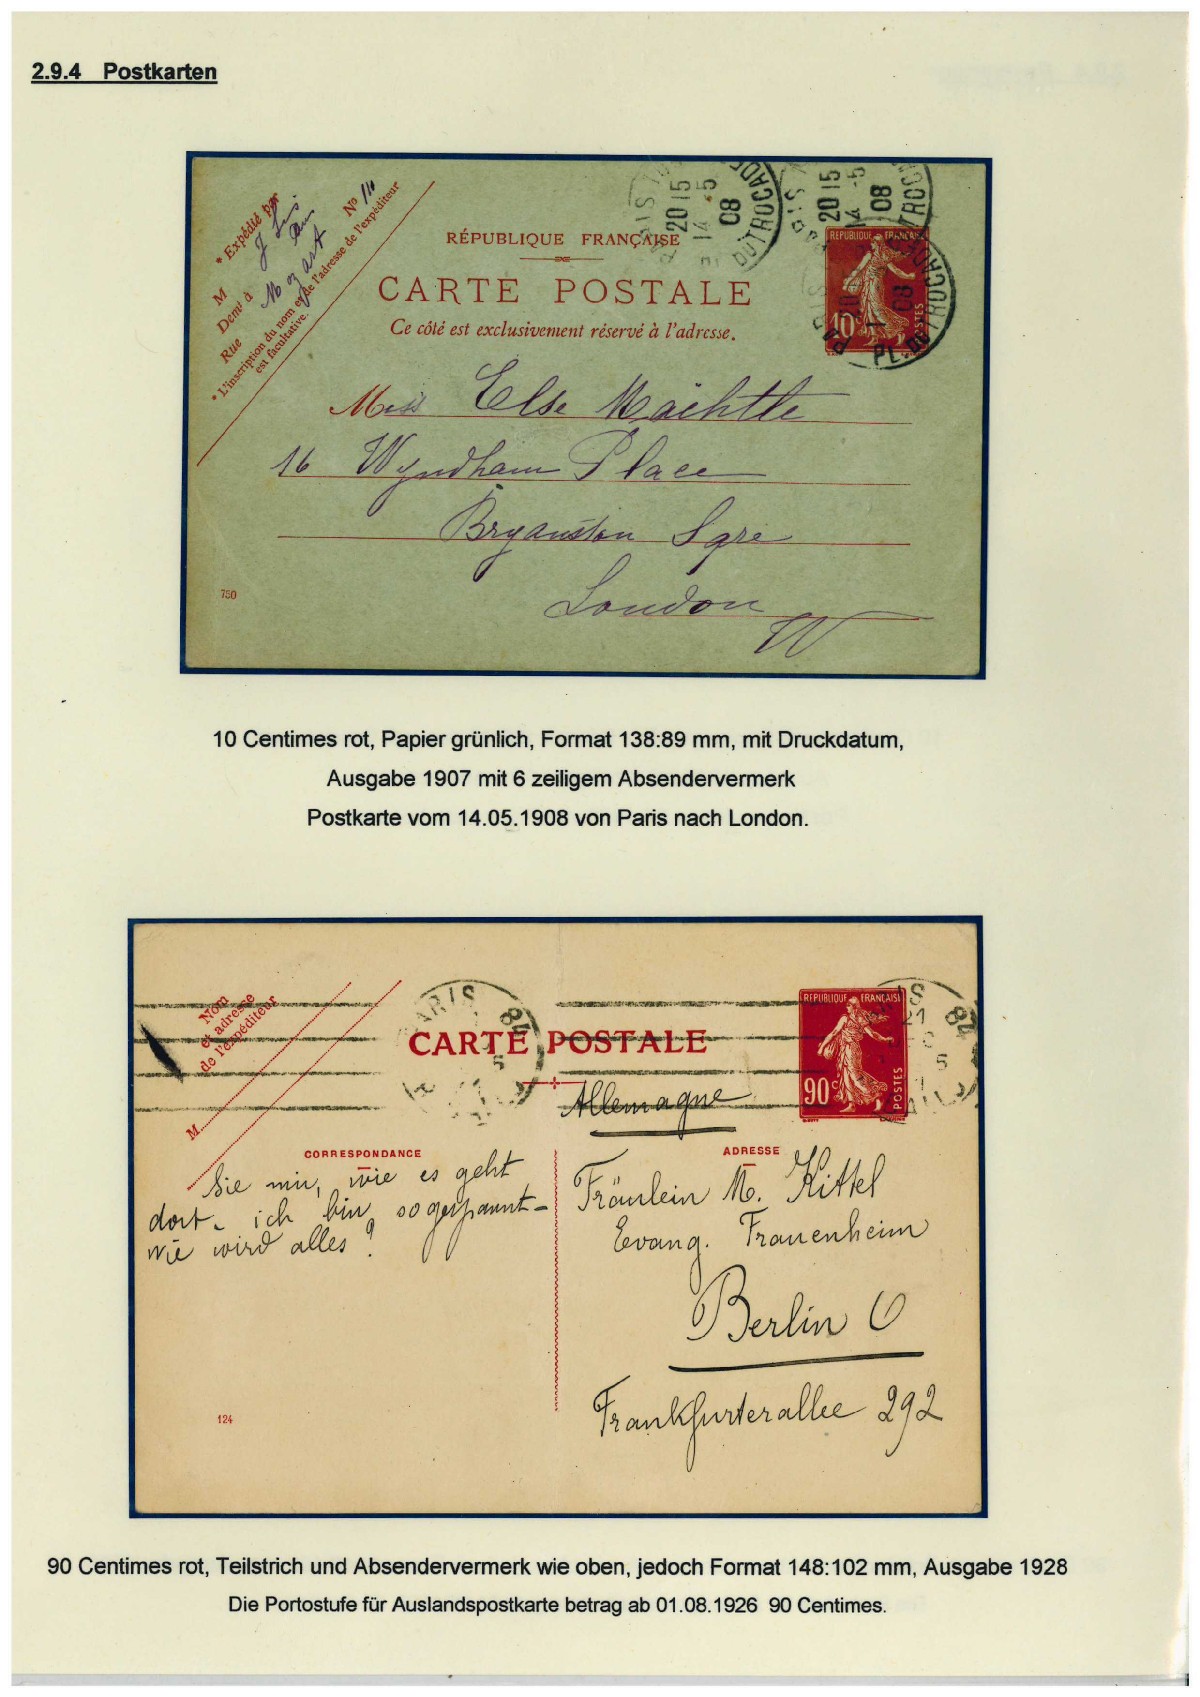 2.9.4 Postkarten
* Expédié par
M
Demt à
Rue Mozart No 11
* L'inscription du nom et de l'adresse de l'expéditeur
est facultative.
RÉPUBLIQUE FRANÇAISE
CARTE POSTALE
Ce côté est exclusivement réservé à l'adresse.
20 15
14 -5
08
PL. DU TROCADE
20 15
14 -5
08
DU TROCADE
RÉPUBLIQUE FRANÇAISE
10c
POSTES
PARIS
08
PL. DU TROCADE
Miss Else Mächtle
16 Wyndham Place
Bryanston Sqre
London
W
750
10 Centimes rot, Papier grünlich, Format 138:89 mm, mit Druckdatum,
Ausgabe 1907 mit 6 zeiligem Absendervermerk
Postkarte vom 14.05.1908 von Paris nach London.
Nom
et adresse
de l'expéditeur
M
PARIS 84
CARTE POSTALE
RÉPUBLIQUE FRANÇAISE
90c
POSTES
21
84
Allemagne
CORRESPONDANCE
ADRESSE
Sie mir, wie es geht
dort - ich bin so gespannt -
wie wird alles?
Fräulein M. Kittel
Evang. Frauenheim
Berlin O
Frankfurterallee 292
124
90 Centimes rot, Teilstrich und Absendervermerk wie oben, jedoch Format 148:102 mm, Ausgabe 1928
Die Portostufe für Auslandspostkarte betrag ab 01.08.1926 90 Centimes.